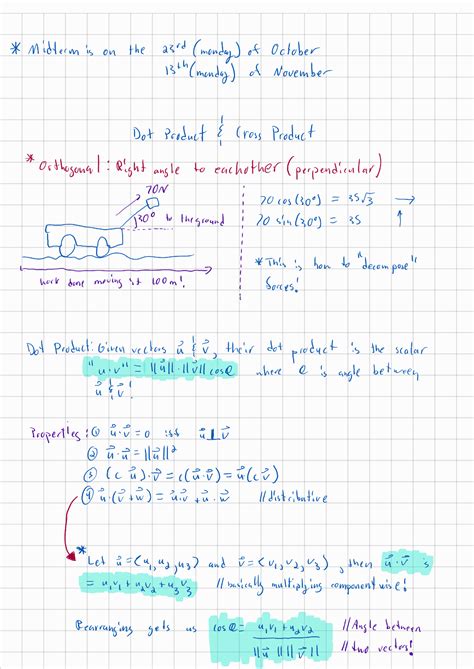 * Midterm is on the 23rd (monday) of October
13th (monday) of November
Dot Product & Cross Product
* Orthogonal: Right angle to eachother (perpendicular)
70N
30° to the ground
work done moving it 100m!
70 cos(30°) = 35√3 →
70 sin(30°) = 35 ↑
* This is how to "decompose"
forces!
Dot Product: Given vectors u⃗ & v⃗, their dot product is the scalar
"u·v" = ||u⃗||·||v⃗|| cosθ where θ is angle between
u⃗ & v⃗!
Properties: ① u⃗·v⃗ = 0 iff u⃗ ⊥ v⃗
② u⃗·u⃗ = ||u⃗||²
③ (c u⃗)·v⃗ = c(u⃗·v⃗) = u⃗(c v⃗)
④ u⃗·(v⃗+w⃗) = u⃗·v⃗ + u⃗·w⃗ // distributive
* Let u⃗ = (u₁, u₂, u₃) and v⃗ = (v₁, v₂, v₃), then u⃗·v⃗ is
= u₁v₁ + u₂v₂ + u₃v₃ // basically multiplying componentwise!
Rearranging gets us cosθ = u₁v₁ + u₂v₂ / ||u⃗|| ||v⃗|| // Angle between
// two vectors!